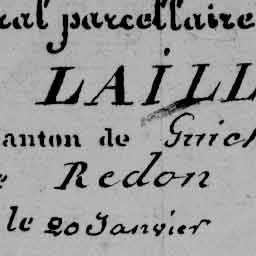 ral parcellaire
LAILL
anton de Guich
e Redon
le 20 Janvier